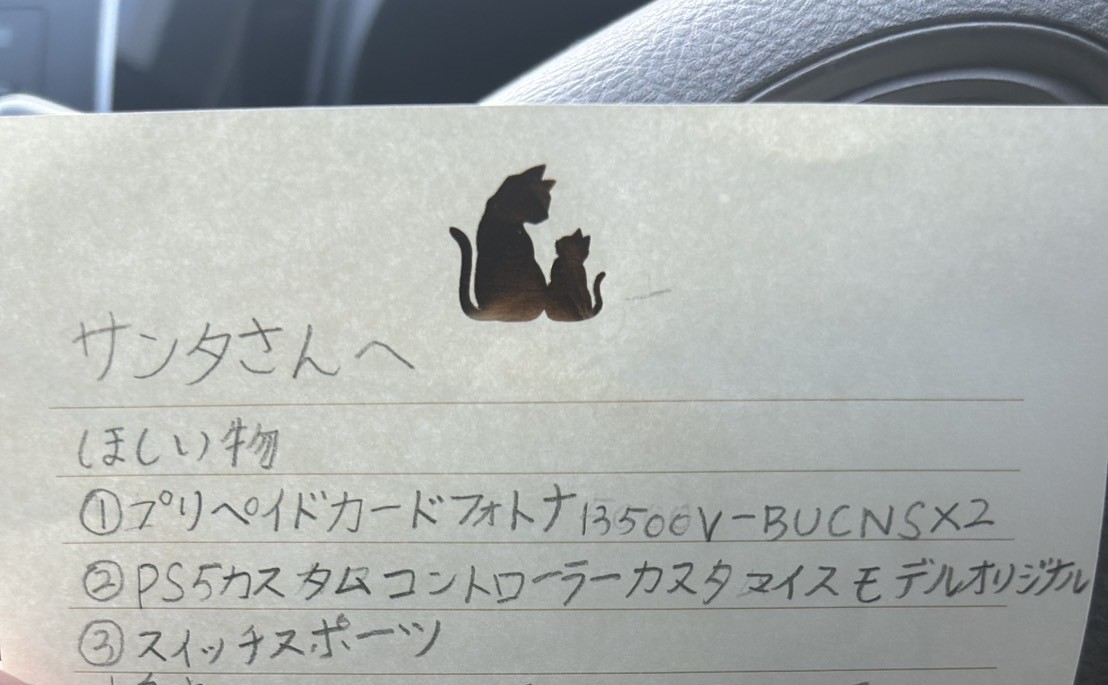 サンタさんへ
ほしい物
①プリペイドカードフォトナ13500V-BUCNS×2
②PS5カスタムコントローラーカスタマイズモデルオリジナル
③スイッチスポーツ